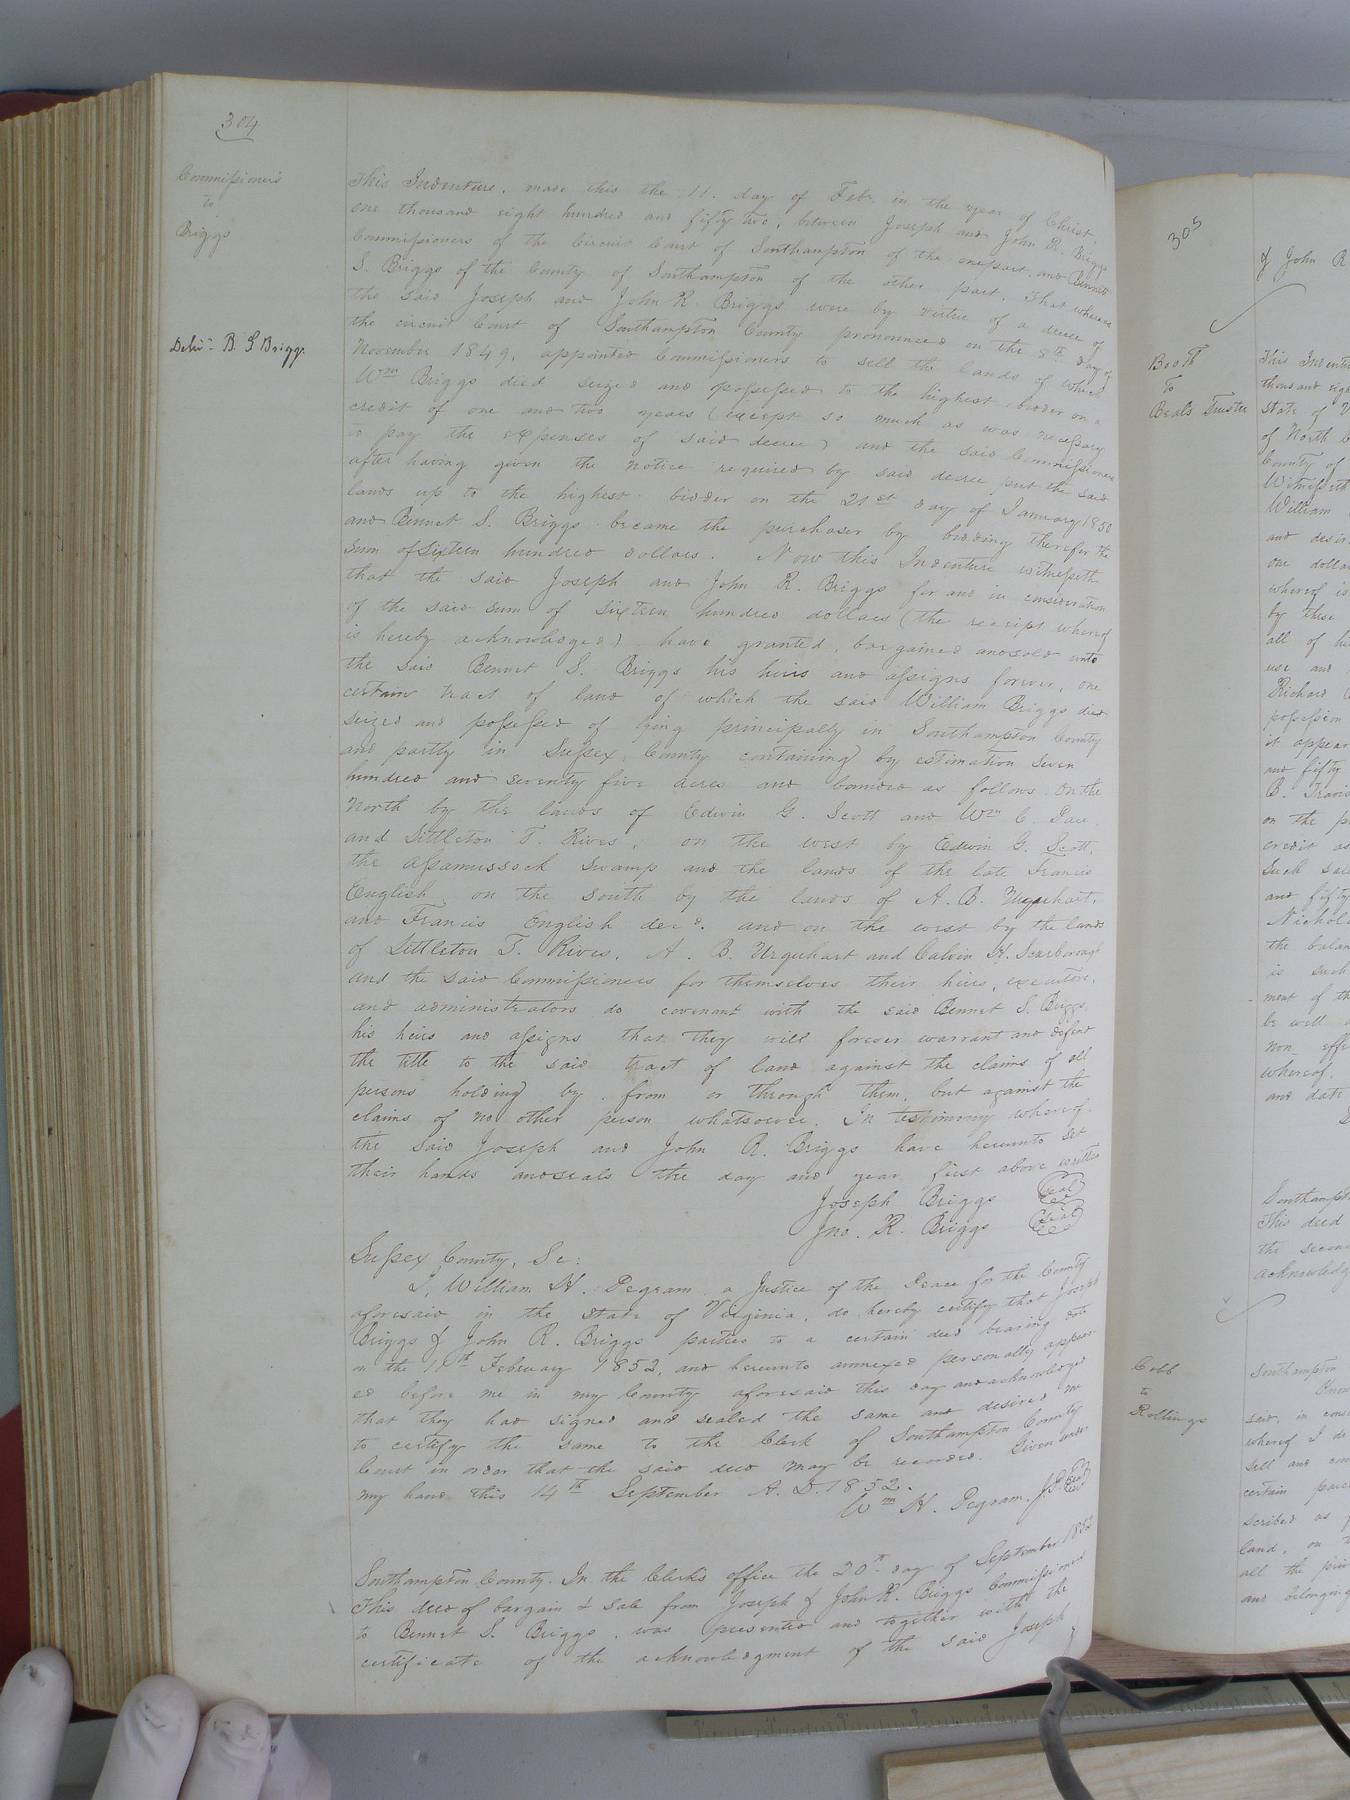 304
Commissioners
to
Briggs
Deliv.d B. S Briggs
This Indenture, made this the 11. day of Feb. in the year of Christ,
one thousand eight hundred and fifty two, between Joseph and John R. Briggs
Commissioners of the Circuit Court of Southampton of the one part and Bennett
S. Briggs of the County of Southampton of the other part. That whereas
the said Joseph and John R. Briggs were by virtue of a decree of
the circuit Court of Southampton County pronounced on the 8th day of
November 1849, appointed Commissioners to sell the lands of which
Wm Briggs died seized and possessed to the highest bidder on a
credit of one and two years (except so much as was necessary
to pay the expenses of said decree) and the said Commissioners
after having given the notice required by said decree put the said
lands up to the highest bidder on the 21st day of January 1850
and Bennet S. Briggs became the purchaser by bidding therefor the
sum of Sixteen hundred dollars. Now this Indenture witnesseth
that the said Joseph and John R. Briggs for and in consideration
of the said sum of Sixteen hundred dollars (the receipt whereof
is hereby acknowledged) have granted, bargained and sold unto
the said Bennet S. Briggs his heirs and assigns forever, one
certain tract of land of which the said William Briggs died
seized and possessed of lying principally in Southampton County
and partly in Sussex County containing by estimation Seven
hundred and seventy five acres and bounded as follows On the
North by the lands of Edwin G. Scott and Wm C.
and Littleton T. Rives, on the west by Edwin G. Scott,
the Assamussock Swamp and the lands of the late Francis
English on the south by the lands of A. B. Urquhart,
and Francis English decd. and on the west by the lands
of Littleton T. Rives, A. B. Urquhart and Calvin H. Scarborough
and the said Commissioners for themselves their heirs, executors,
and administrators do covenant with the said Bennet S. Briggs
his heirs and assigns that they will forever warrant and defend
the title to the said tract of land against the claims of all
persons holding by, from or through them, but against the
claims of no other person whatsoever. In testimony whereof
the said Joseph and John R. Briggs have hereunto set
their hands and seals the day and year first above written
Joseph Briggs Seal
Jno. R. Briggs Seal
Sussex County, Sc:
I, William H. Pegram a Justice of the Peace for the County
aforesaid in the State of Virginia, do hereby certify that Joseph
Briggs & John R. Briggs parties to a certain deed bearing date
on the 11th February 1852, and hereunto annexed personally appear-
ed before me in my County aforesaid this day and acknowledged
that they had signed and sealed the same and desired me
to certify the same to the Clerk of Southampton County
Court in order that the said deed may be recorded. Given under
my hand this 14th September A. D. 1852.
Wm H. Pegram, J.P. Seal
Southampton County. In the Clerk's office the 20th day of September 1852
This deed of bargain & sale from Joseph & John R. Briggs Commissioners
to Bennet S. Briggs, was presented and together with the
certificate of the acknowledgment of the said Joseph
305
& John R
Booth
To
Beals Trustee
This Indentu
thousand eig
State of
of North
County of
Witnesseth
William
and desir
one dolla
whereof is
by these
all of hi
use and
Richard
possession
it appear
and fifty
B. Travis
on the p
credit as
Such sale
and fifty
Nichol
the balan
is such
ment of th
be well
non effe
whereof,
and date
Southampt
This deed
the secon
acknowledg
Cobb
to
Rollings
Southampton
Know
said, in cons
whereof I do
sell and con
certain parce
scribed as
land, on
all the pri
and belonging